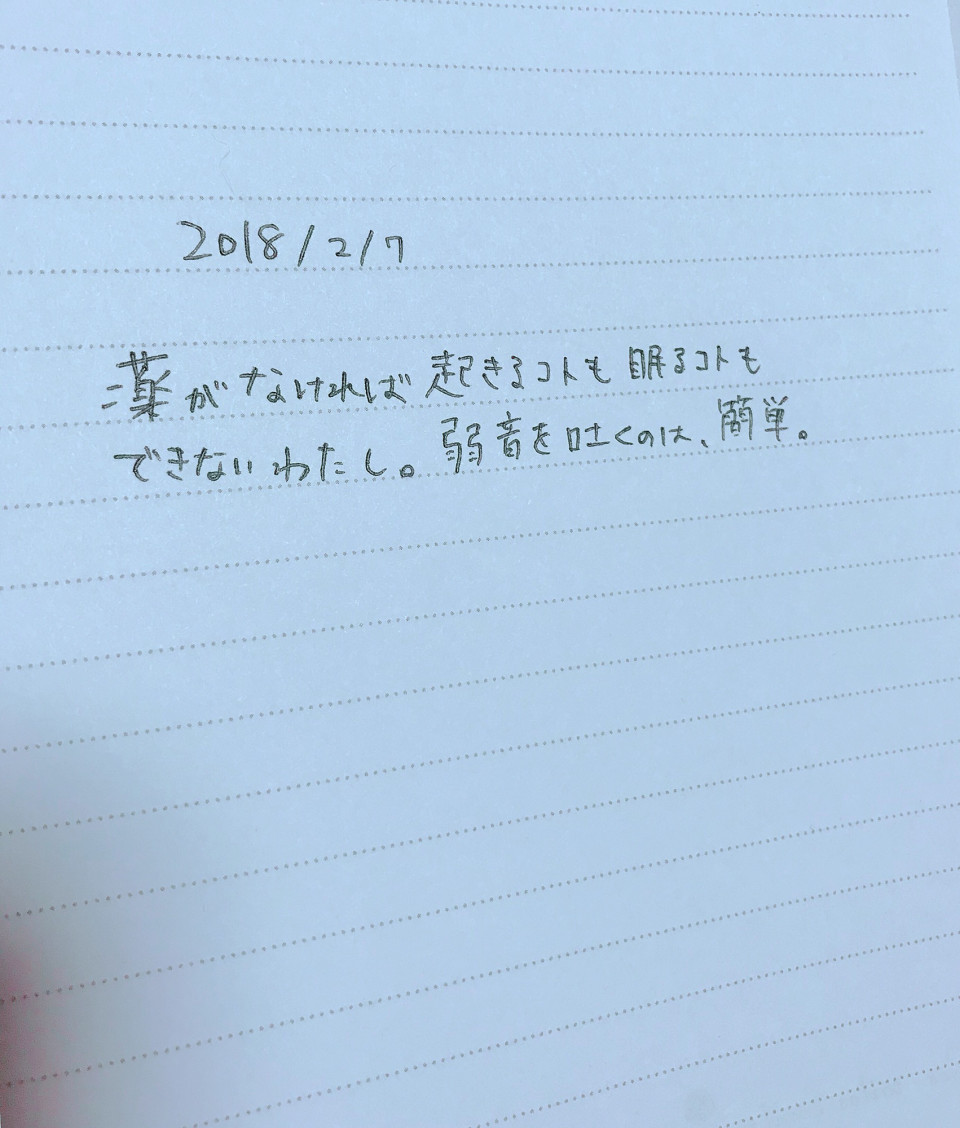 2018/2/7
薬がなければ起きるコトも眠るコトも
できないわたし。弱音を吐くのは、簡単。